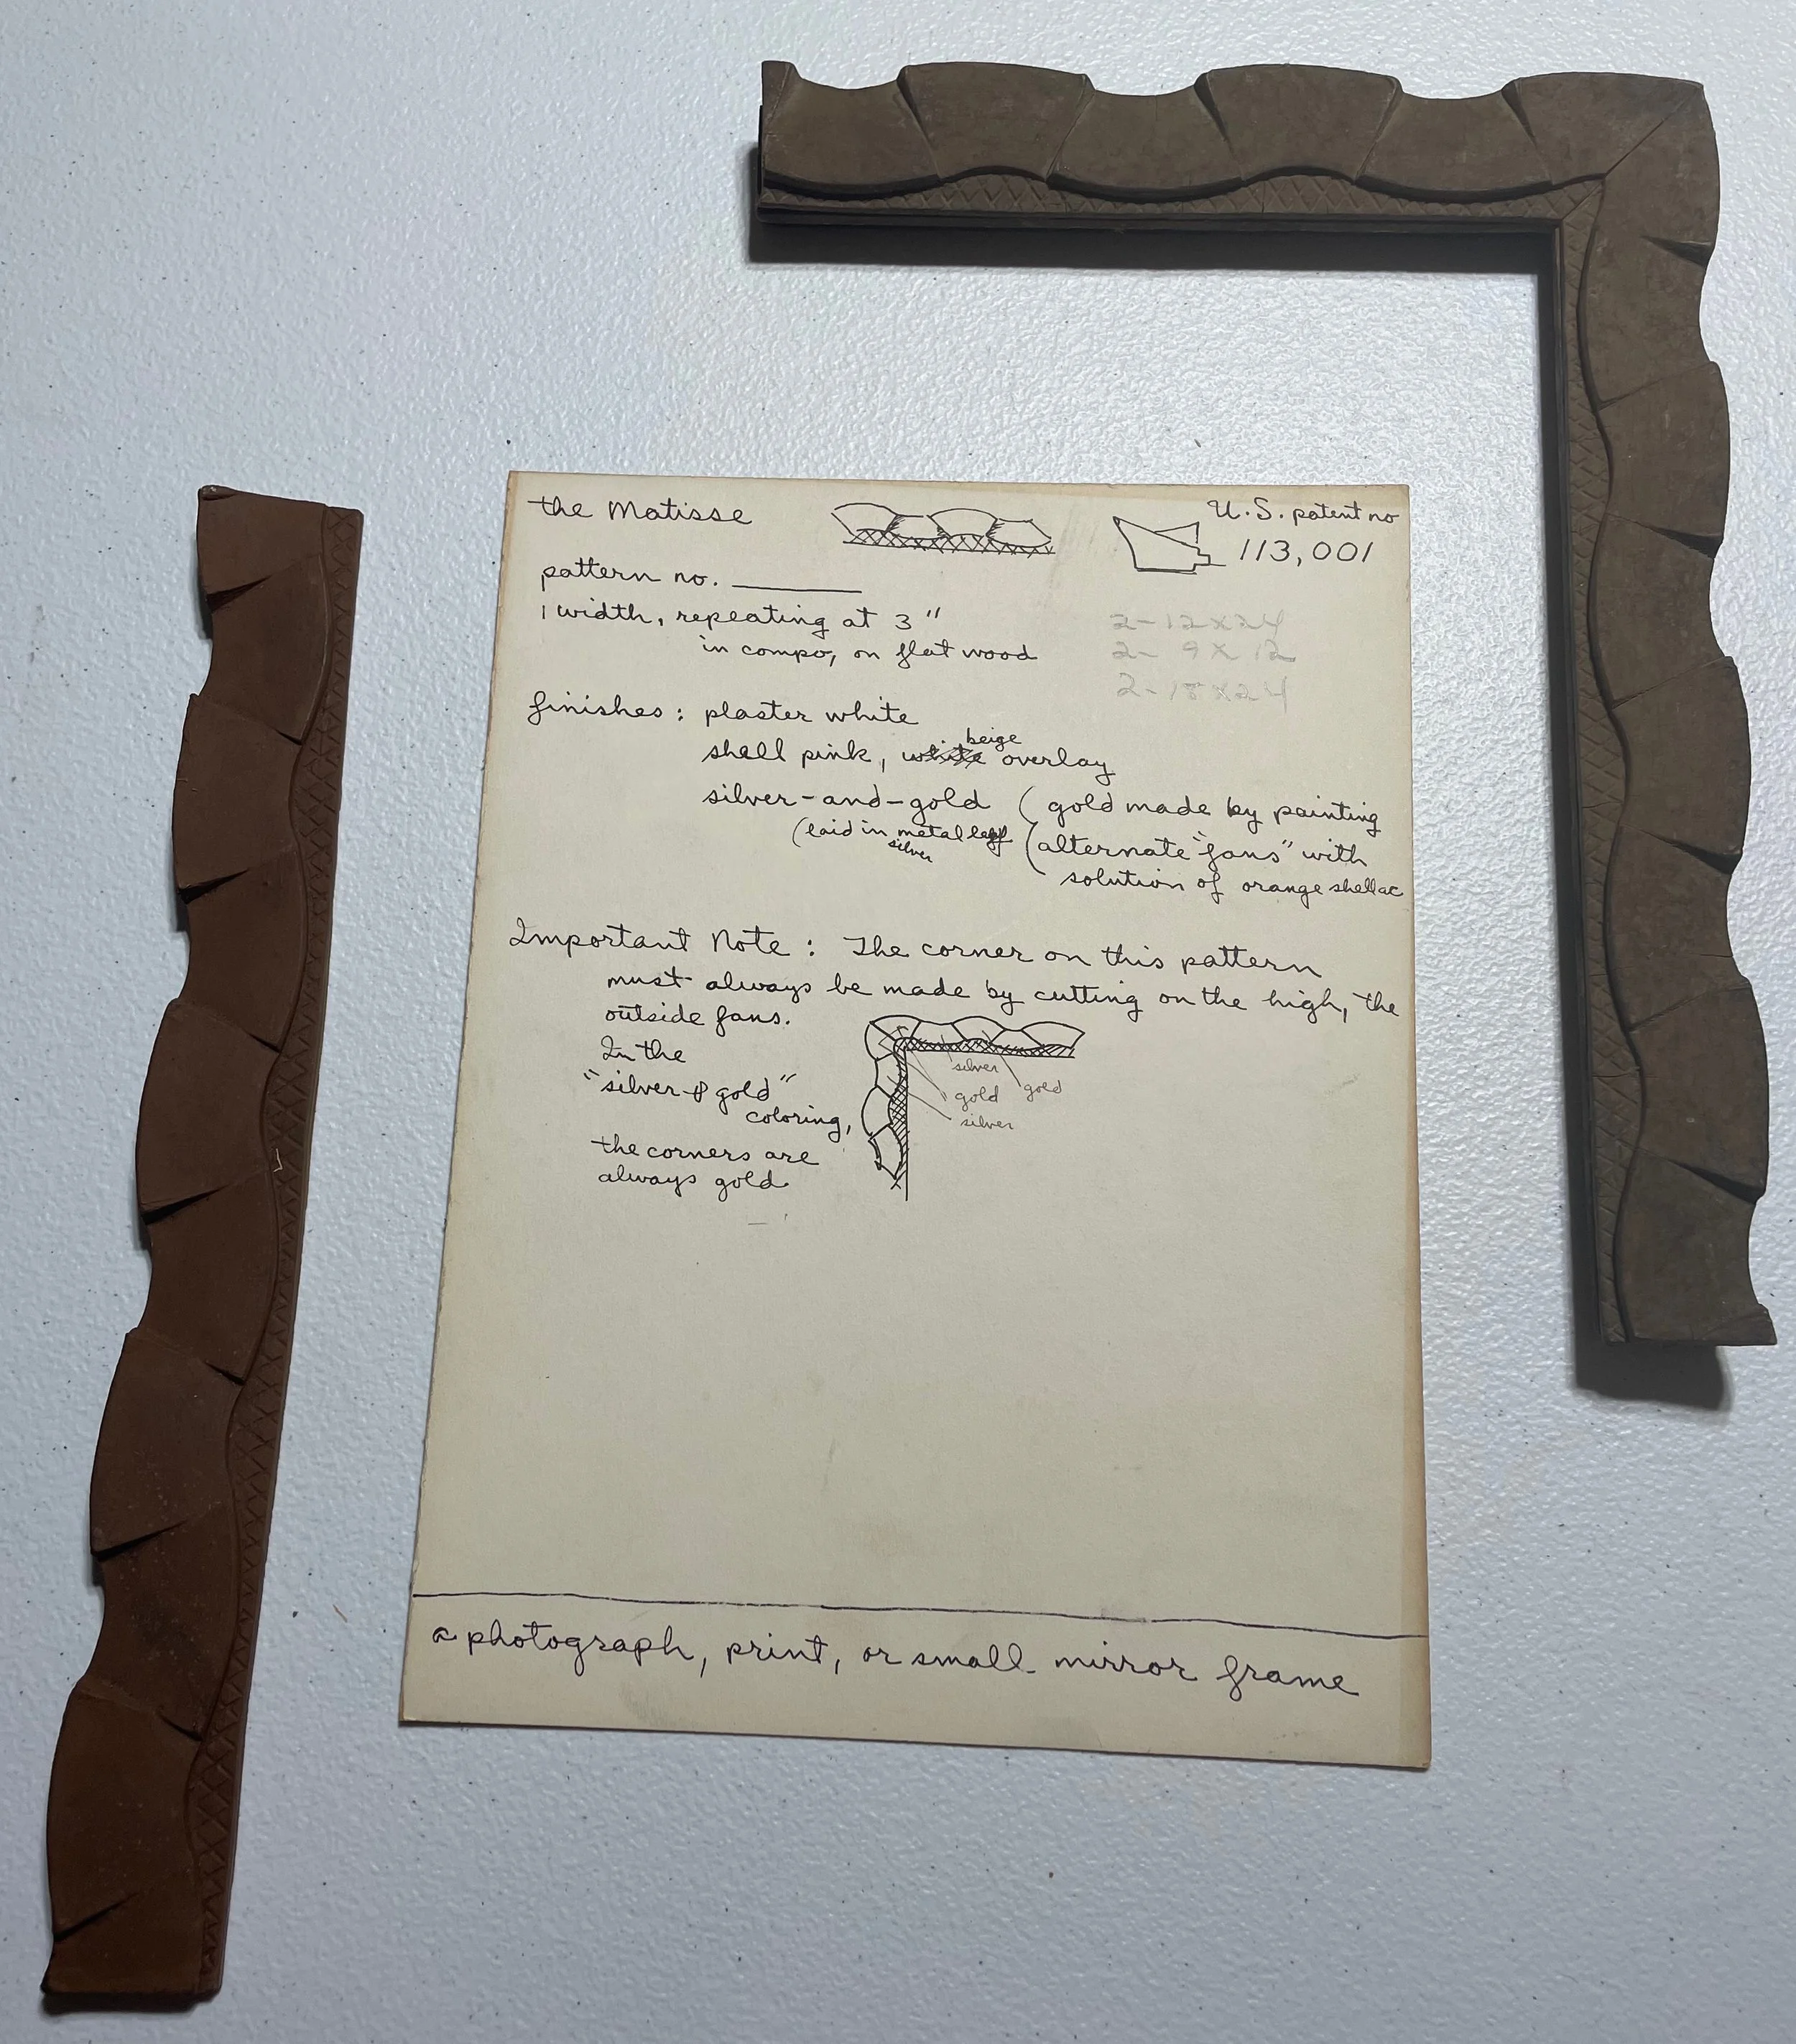 the Matisse
U.S. patent no
113,001
pattern no. ________
1 width, repeating at 3"
in compo, on flat wood
2- 12 x 24
2- 9 x 12
2- 18 x 24
finishes : plaster white
shell pink, white beige overlay
silver-and-gold (gold made by painting
(laid in metal leaf
silver
(alternate "fans" with
solution of orange shellac
Important Note : The corner on this pattern
must always be made by cutting on the high, the
outside fans.
In the
"silver & gold"
coloring,
the corners are
always gold.
silver
gold
gold
silver
a photograph, print, or small mirror frame